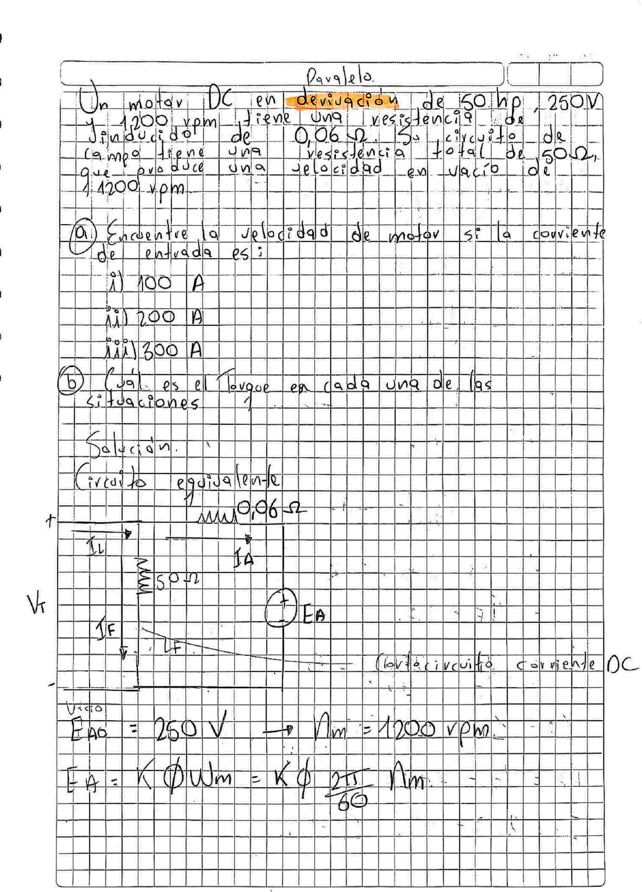 Paralelo.
Un motor DC en derivación de 50 hp, 250V
y 1200 rpm tiene una resistencia de
inducido de 0,06 Ω. Su circuito de
campo tiene una resistencia total de 50Ω,
que produce una velocidad en vacío de
1200 rpm.
a) Encuentre la velocidad de motor si la corriente
de entrada es:
i) 100 A
ii) 200 A
iii) 300 A
b) Cuál es el Torque en cada una de las
situaciones
Solución.
Circuito equivalente
0,06 Ω
+
IL
IA
50Ω
VT
+
EA
IF
LF
Cortacircuito corriente DC
-
Vacio
EA0 = 250 V → nm = 1200 rpm.
EA = KϕWm = Kϕ 2π/60 nm.